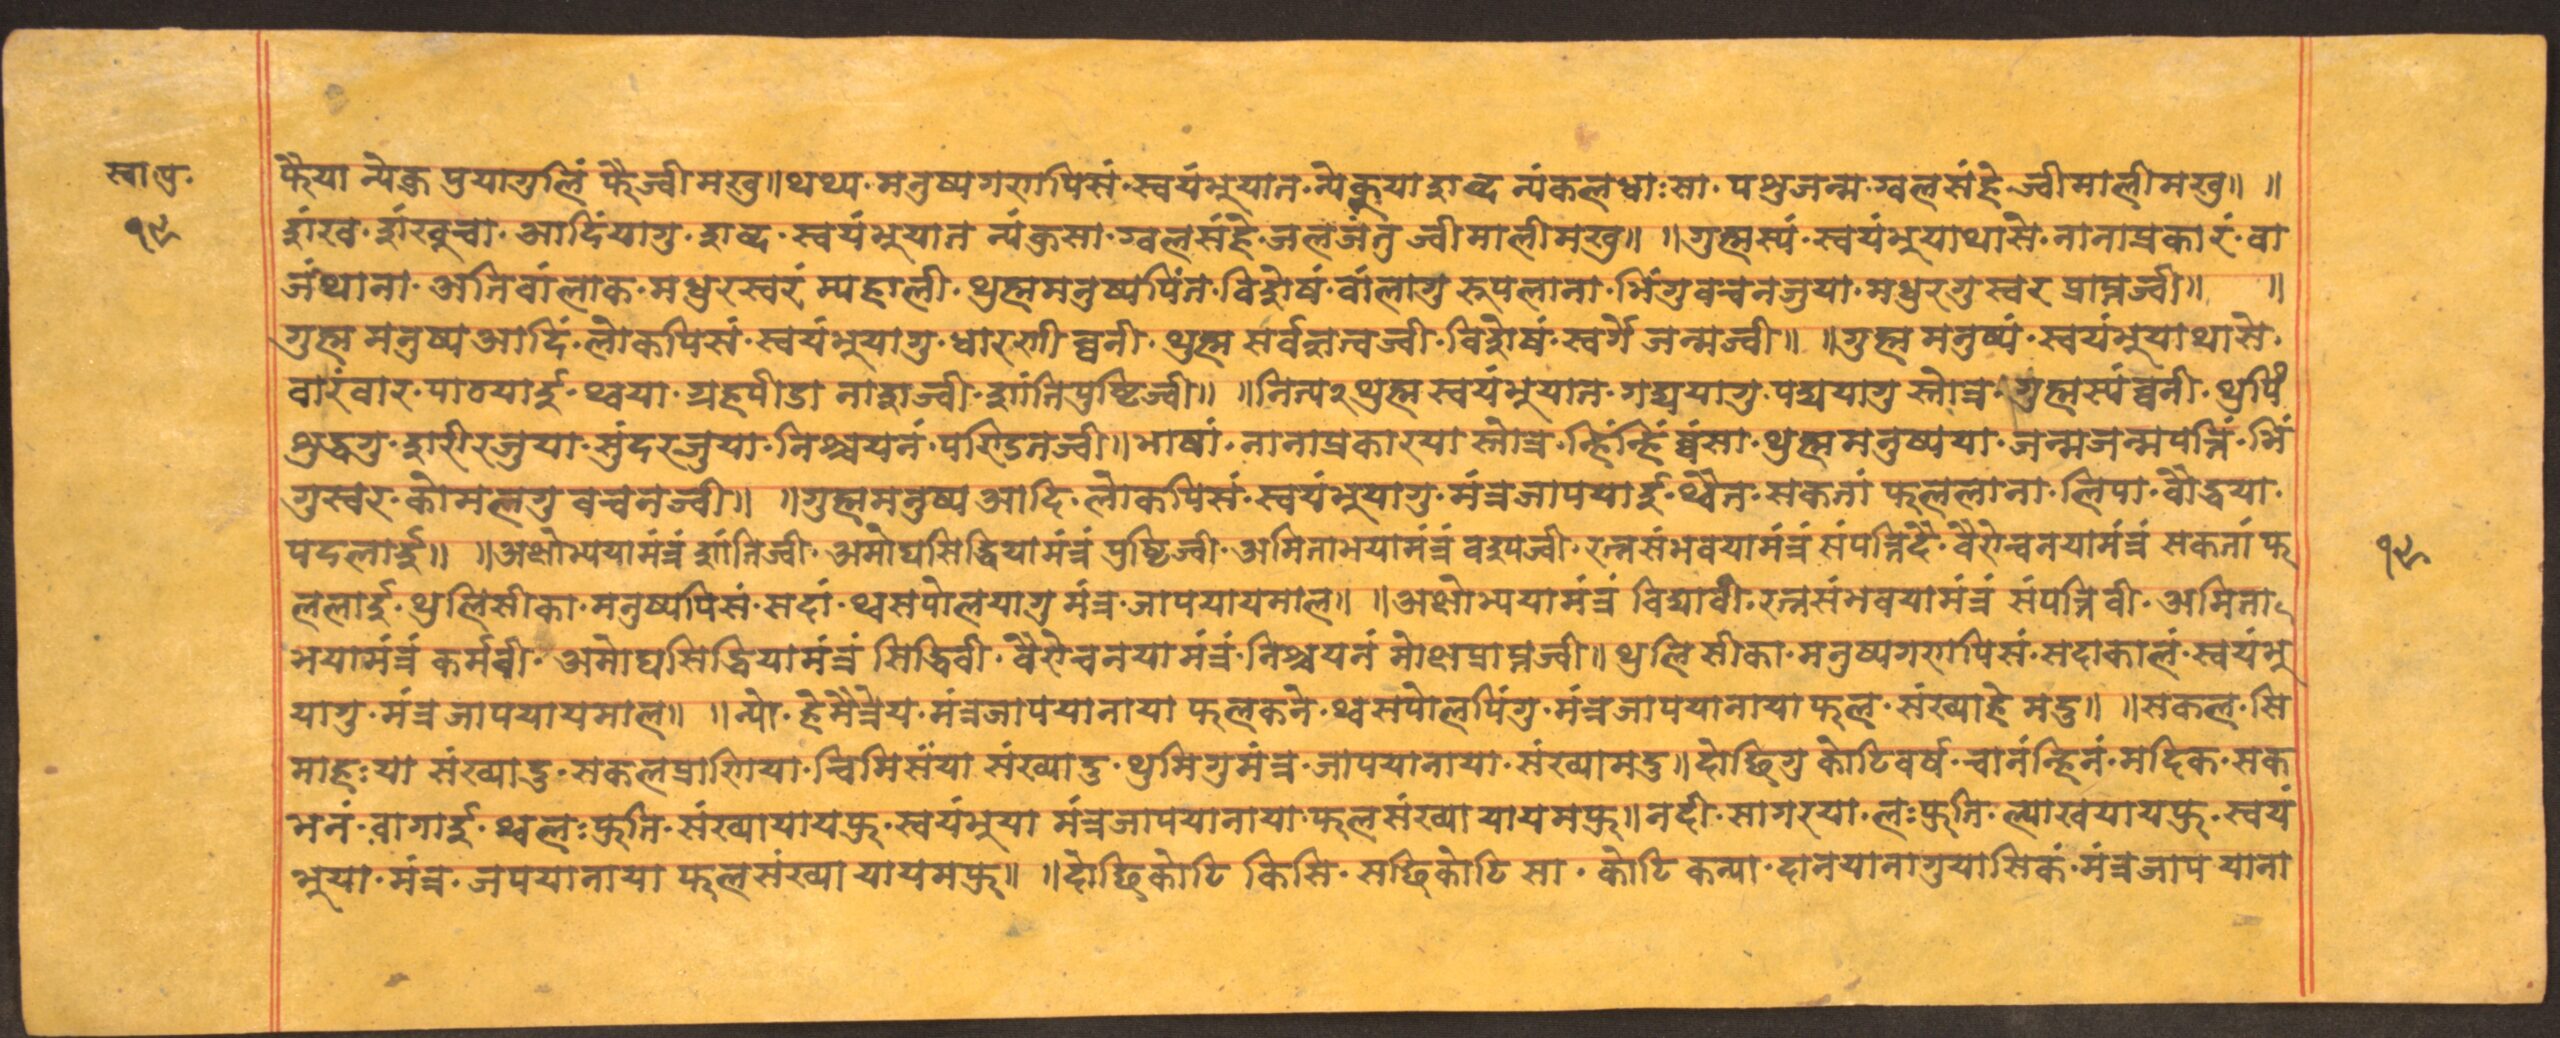 स्वा पु॰
१९
फैया न्येक्रु पुयागुलिं फैज्वीमखु॥थथ्य॰मनुष्यगणपिसं॰स्वयंभुयात॰न्येक्रुयाशब्द न्यंकलधाःसा॰पशुजन्म॰ग्वलसंहे ज्वीमालीमखु॥ ॥
शंख॰शंखुचा॰आदिंयागु॰शब्द॰स्वयंभुयात न्यंक्रसा॰ग्वलसंहे॰जलजंतु ज्वीमालीमखु॥ ॥गुह्मस्यं॰स्वयंभुयाथासे॰नानाप्रकारं॰बा
जंथाना॰अतिबांलाक॰मधुरस्वरं म्यहाली॰थुह्ममनुष्यपिंत॰विशेषं॰बांलागु रुपलाना॰भिंगुवचनजुया॰मधुरगुस्वर प्राप्तज्वी॥ ॥
गुह्म मनुष्यआदिं॰लोकपिसं॰स्वयंभुयागु॰धारणी ब्वनी॰थुह्म सर्वज्ञत्वज्वी॰विशेषं॰स्वर्गे जन्मज्वी॥ ॥गुह्म मनुष्यं॰स्वयंभुयाथासे॰
वारंवार॰पाठयाई॰थ्वया॰ग्रहपीडा नाशज्वी॰शांतिपुष्टिज्वी॥ ॥नित्य२थुह्म स्वयंभुयात॰गद्ययागु॰पद्ययागु स्तोत्र॰गुह्मस्यं ब्वनी॰थुपिं
शुद्धगु॰शरीरजुया॰सुंदरजुया॰निश्चयनं॰पण्डितज्वी॥भाषां॰नानाप्रकारया स्तोत्र॰न्हिंन्हिं ब्वंसा॰थुह्ममनुष्यया॰जन्मजन्मपत्तिं॰भिं
गुस्वर॰कोमलगु वचनज्वी॥ ॥गुह्ममनुष्य आदि॰लोकपिसं॰स्वयंभुयागु॰मंत्रजापयाई॰थ्वैत॰सकतां फुललाना॰लिपा॰बौद्धया॰
पदलाई॥ ॥अक्षोभ्ययामंत्रं शांतिज्वी॰अमोघसिद्धियामंत्रं पुष्टिज्वी॰अमिताभयामंत्रं वश्यज्वी॰रत्नसंभवयामंत्रं संपत्तिदै॰वैरोचनयामंत्रं सकतां फ
ललाई॰थुलिसीका॰मनुष्यपिसं॰सदां॰थ्वसपोलयागु मंत्र॰जापयायमाल॥ ॥अक्षोभ्ययामंत्रं विद्यावी॰रत्नसंभवयामंत्रं संपत्तिवी॰अमिता
भयामंत्रं कर्मवी॰अमोघसिद्धियामंत्रं सिद्धिवी॰वैरोचनयामंत्रं॰निश्चयनं मोक्षप्राप्तज्वी॥थुलिसीका॰मनुष्यगणपिसं॰सदाकालं॰स्वयंभु
यागु॰मंत्रजापयायमाल॥ ॥न्यो॰हेमैत्रेय॰मंत्रजापयानाया फुलकने॰थ्वसपोलपिंगु॰मंत्रजापयानाया फुल॰संख्याहे मदु॥ ॥सकल॰सि
माहःया संख्यादु॰सकलप्राणिया॰चिमिसंया संख्यादु॰थुमिगुमंत्र॰जापयानाया॰संख्यामदु॥दोछिगु कोटिवर्ष॰चानंन्हिनं॰मदिक॰सक
भनं॰वागाई॰थ्वलःफुति॰संख्यायायफु॰स्वयंभुया मंत्रजापयानाया फुलसंख्या यायमफु॥नदी॰सागरया॰लःफुति॰ल्याखयायफु॰स्वयं
भुया॰मंत्र॰जपयानाया फुलसंख्या यायमफु॥ ॥दोछिकोटि किसि॰सछिकोटि सा॰कोटि कन्या॰दानयानागुयासिकं॰मंत्रजाप याना
१९